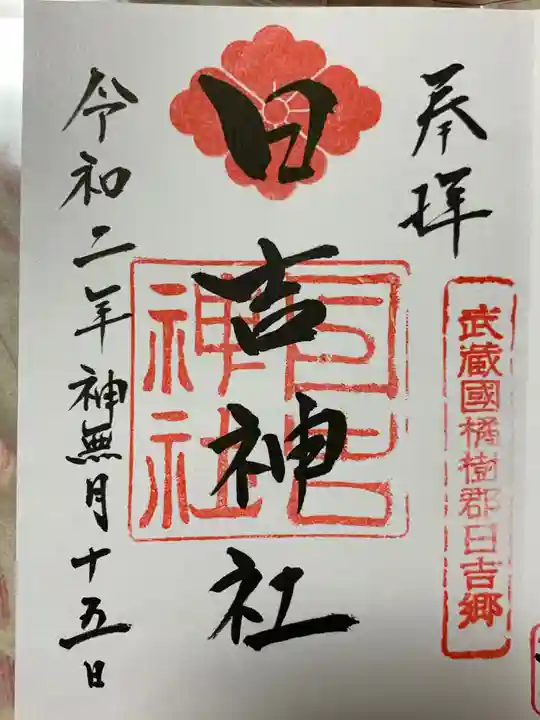 奉拝
武蔵國橘樹郡日吉郷
日吉神社
日吉神社
令和二年神無月十五日